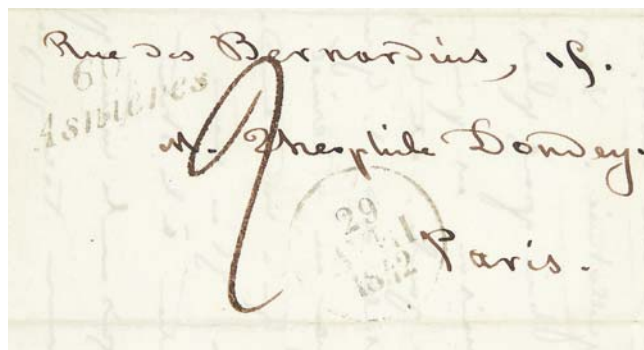 Rue des Bernardins, 15.
60
Asnières
M. Théophile Dondey.
2
29
1842
Paris.